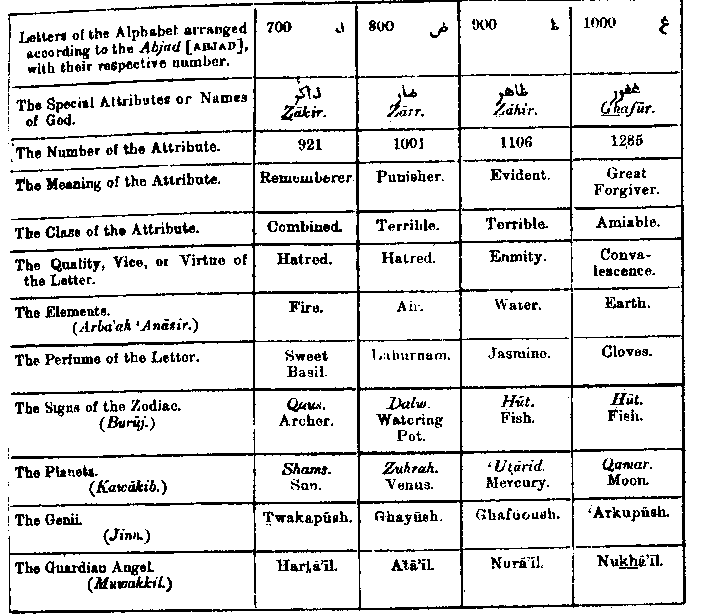 Letters of the Alphabet arranged according to the Abjad [ABJAD], with their respective number. 700 ذ 800 ض 900 ظ 1000 غ
The Special Attributes or Names of God. ذاكر Zākir. ضار Zārr. ظاهر Zāhir. غفور Ghafūr.
The Number of the Attribute. 921 1001 1106 1285
The Meaning of the Attribute. Rememberer Punisher. Evident. Great Forgiver.
The Class of the Attribute. Combined. Terrible. Terrible. Amiable.
The Quality, Vice, or Virtue of the Letter. Hatred. Hatred. Enmity. Convalescence.
The Elements. (Arba'ah 'Anāsir.) Fire. Air. Water. Earth.
The Perfume of the Letter. Sweet Basil. Laburnam. Jasmine. Cloves.
The Signs of the Zodiac. (Burūj.) Qaus. Archer. Dalw. Watering Pot. Hūt. Fish. Hūt. Fish.
The Planets. (Kawākib.) Shams. Sun. Zuhrah. Venus. 'Utārid. Mercury. Qamar. Moon.
The Genii. (Jinn.) Twakapūsh. Ghayūsh. 'Arkupūsh.
The Guardian Angel. (Muwakkil.) Hartā'īl. Atā'īl. Nurā'īl. Nukhā'īl.